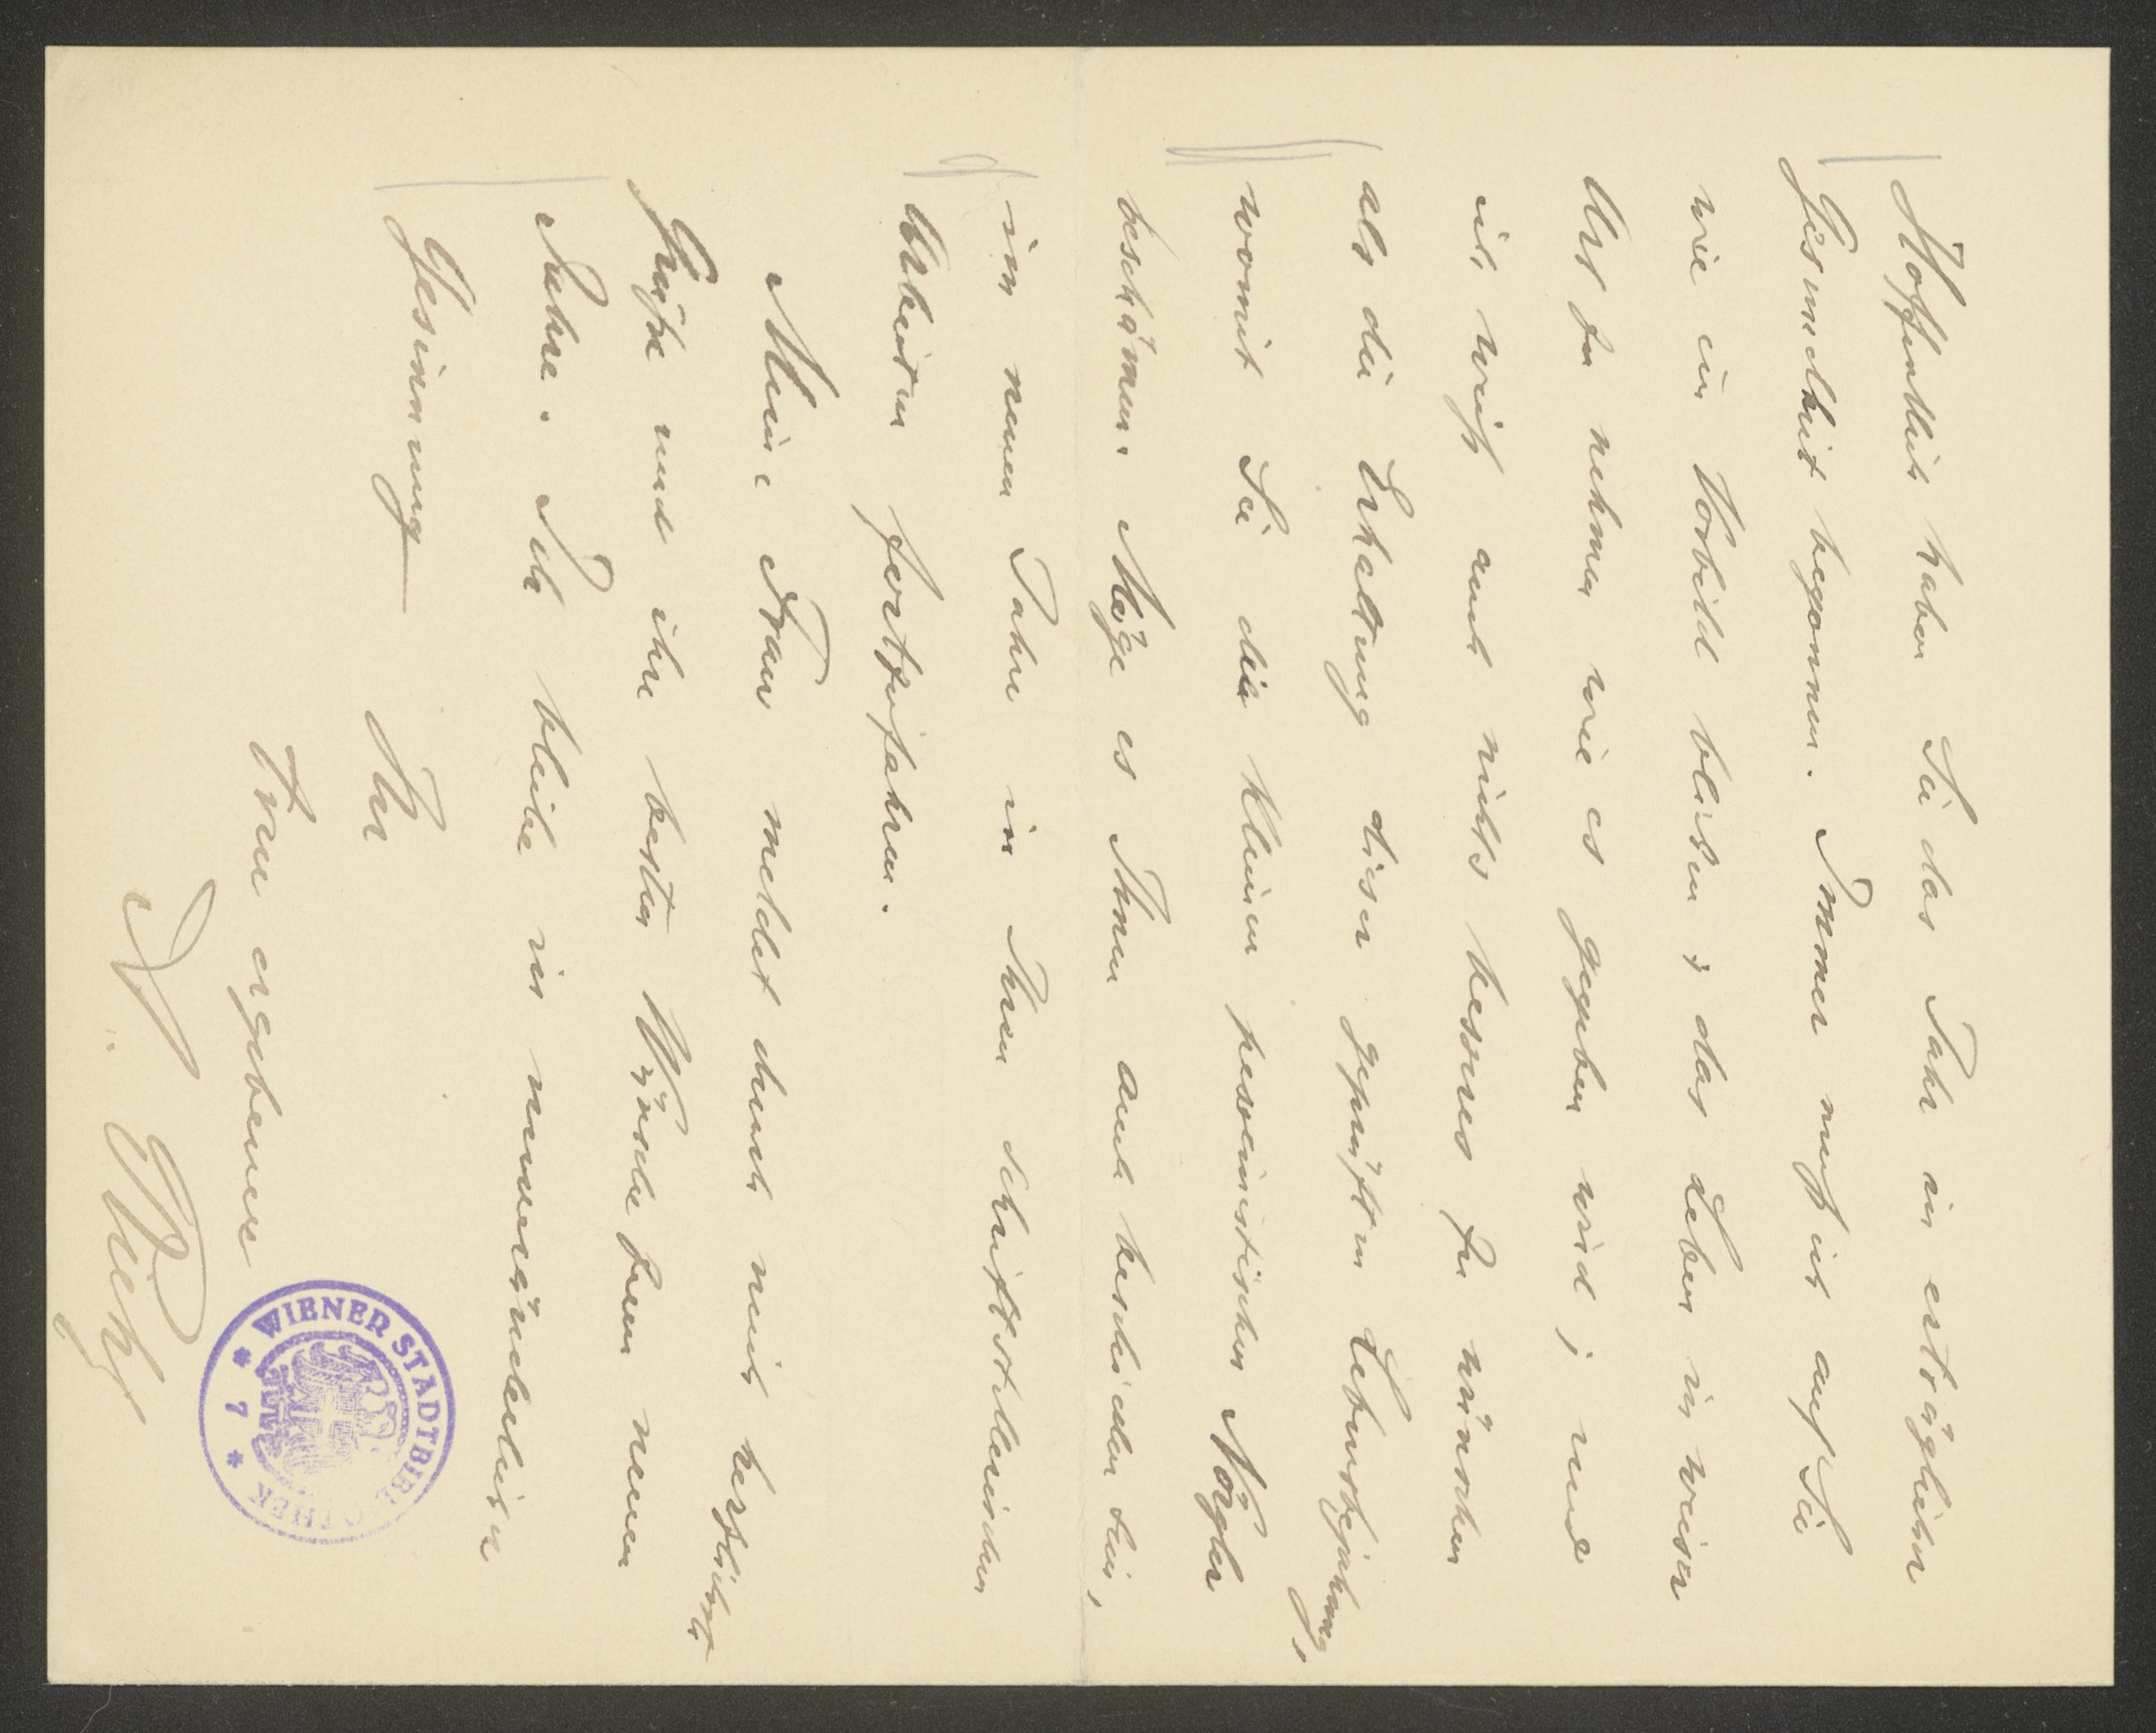 Hoffentlich haben Sie das Jahr in erträglicher
Gesundheit begonnen. Immer muß ich auf Sie
wie ein Vorbild blicken; das Leben in weiser
Art zu nehmen wie es gegeben wird; und
ich weiß auch nichts besseres zu wünschen
als die Erhaltung dieser geprüften Lebensbejahung,
womit Sie die kleinen pessimistischen Nörgler
beschämen. Möge es Ihnen auch beschieden sein,
im neuen Jahre in Ihren schriftstellerischen
Arbeiten fortzufahren.
Meine Frau meldet durch mich herzlichste
Grüße und ihre besten Wünsche zum neuen
Jahre. Ich bleibe in unveränderlicher
Gesinnung
Ihr
treu ergebener
WIENER STADTBIBLIOTHEK
* 7 *